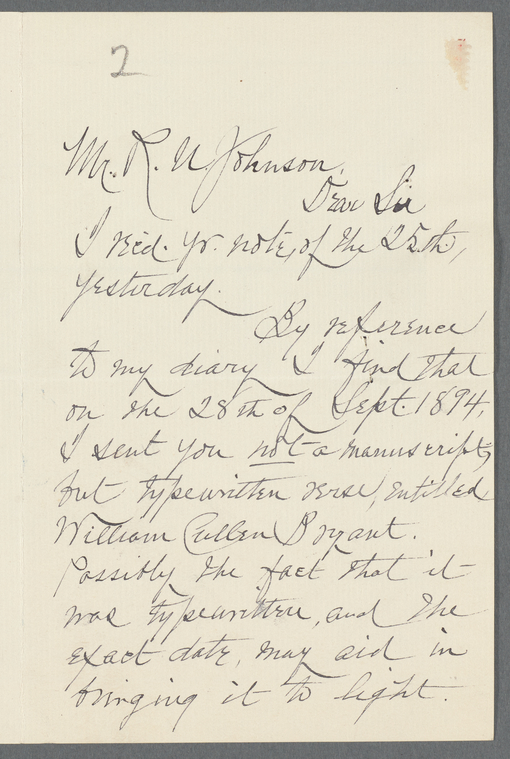 2
Mr. R. U. Johnson,
Dear Sir
I rec'd. yr. note, of the 25th,
yesterday.
By reference
to my diary I find that
on the 28th of Sept. 1894,
I sent you not a manuscript,
but typewritten verse, entitled
William Cullen Bryant.
Possibly the fact that it
was typewritten, and the
exact date, may aid in
bringing it to light.